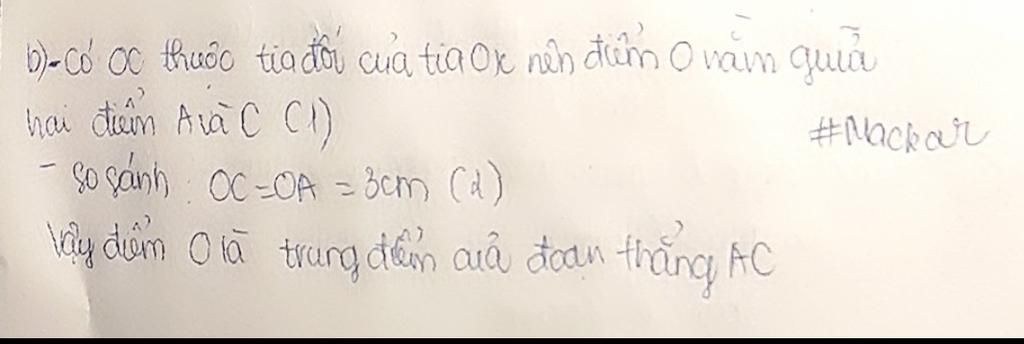 b)-Có OC thuộc tia đối của tia Ox nên điểm O nằm giữa
hai điểm A và C (1)
#Mackar
- So sánh: OC=OA = 3cm (2)
Vậy điểm O là trung điểm của đoạn thẳng AC